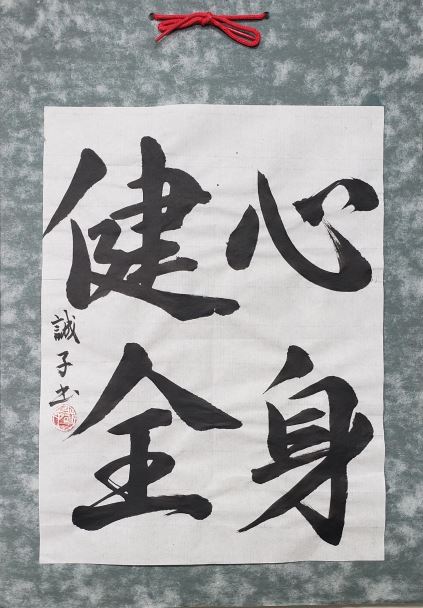 心身
健全
誠子書